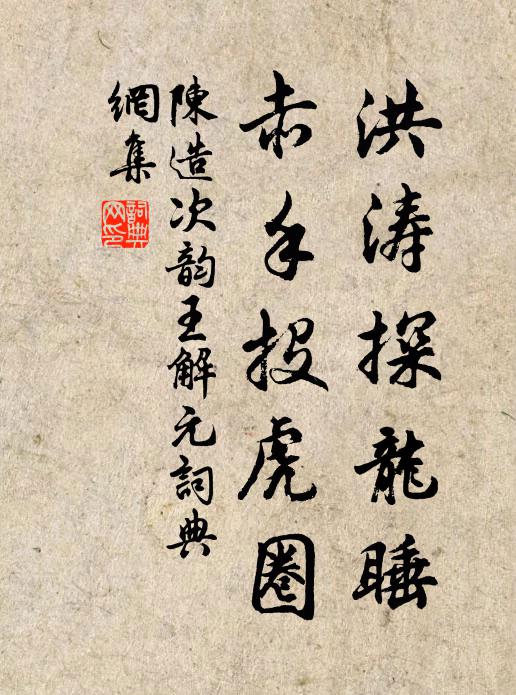 洪涛探龍睡
赤手投虎圈
陳造次韵王解元詞典
網集
詞典網印